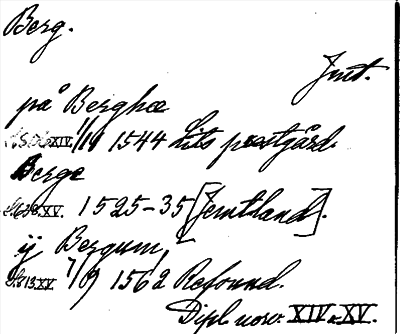 Berg.
Jmt.
på Berghæ
XIV. 1/19 1544 Lits prestgård.
Berge
XV. 1525-35 [Jemtland].
ij Bergum,
S. 13 XV. 7/9 1562 Refsund.
Dipl. norv. XIV o. XV.